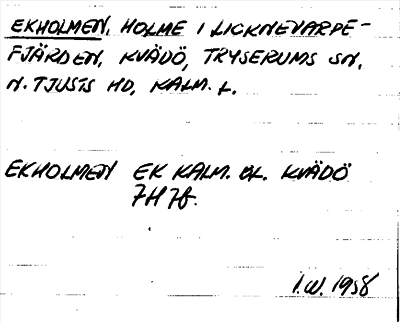 EKHOLMEN, HOLME I LICKNEVARPE-
FJÄRDEN, KVÄDÖ, TRYSERUMS SN,
N. TJUSTS HD, KALM. L.
EKHOLMEN EK KALM. BL. KVÄDÖ
7H7f.
I.W. 1958